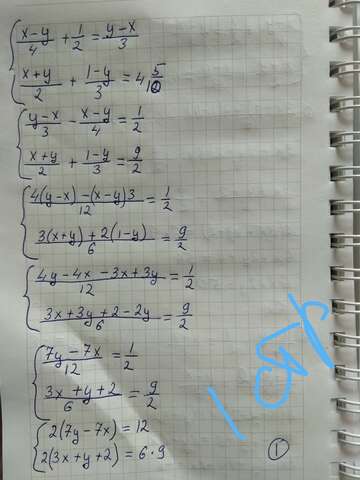 (x-y)/4 + 1/2 = (y-x)/3
(x+y)/2 + (1-y)/3 = 4 5/10
(y-x)/3 - (x-y)/4 = 1/2
(x+y)/2 + (1-y)/3 = 9/2
(4(y-x) - (x-y)3)/12 = 1/2
(3(x+y) + 2(1-y))/6 = 9/2
(4y - 4x - 3x + 3y)/12 = 1/2
(3x + 3y + 2 - 2y)/6 = 9/2
(7y - 7x)/12 = 1/2
(3x + y + 2)/6 = 9/2
2(7y - 7x) = 12
2(3x + y + 2) = 6 · 9
1